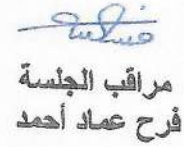 مراقب الجلسة
فرح عماد أحمد